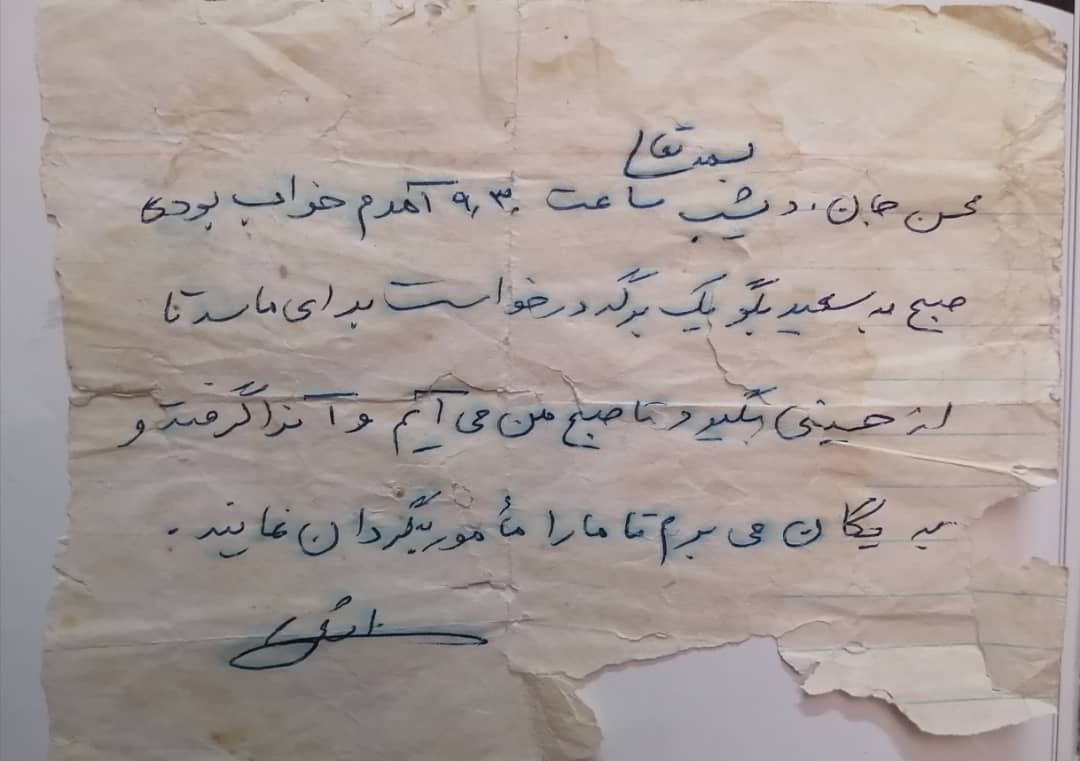 بسمه تعالی
محسن جان. دیشب ساعت ۹٫۳۰ آمدم خواب بودی
صبح به سعید بگو یک برگه درخواست برای ما سه تا
از حسینی بگیرد تا صبح من می آیم و آنرا گرفته و
به یگان می برم تا ما را مأمور بگردان نمایند.